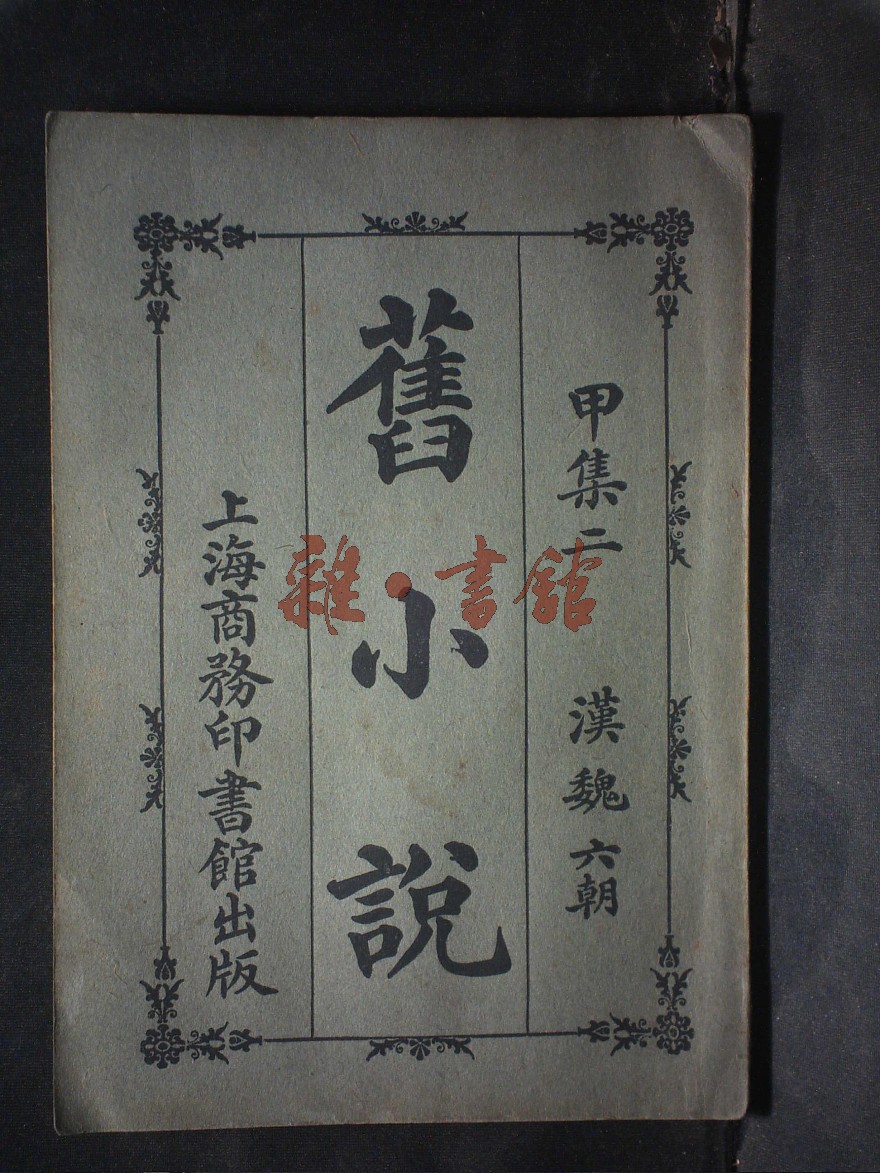 甲集二 漢魏六朝
舊小說
上海商務印書館出版
雜·書館